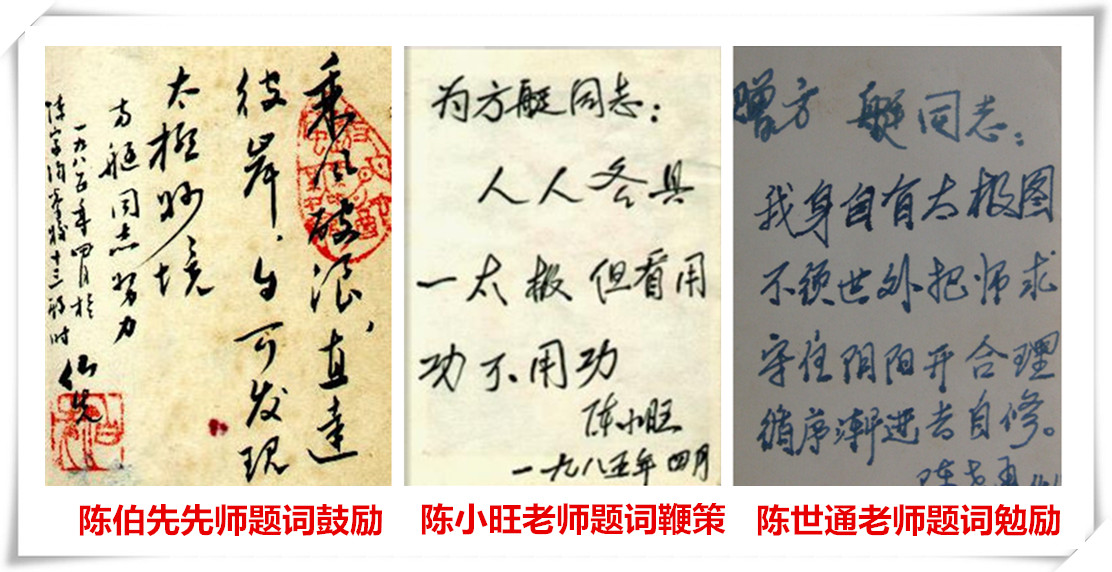 乘风破浪,直达
彼岸,可发现
太极妙境
方艇同志努力
一九八五年四月於
陈家沟
伯先
为方艇同志:
人人各具
一太极但看用
功不用功
陈小旺
一九八五年四月
赠方 艇同志:
我身自有太极图
不须世外把师求
守住阴阳开合理
循序渐进去自修。
陈伯先先师题词鼓励
陈小旺老师题词鞭策
陈世通老师题词勉励